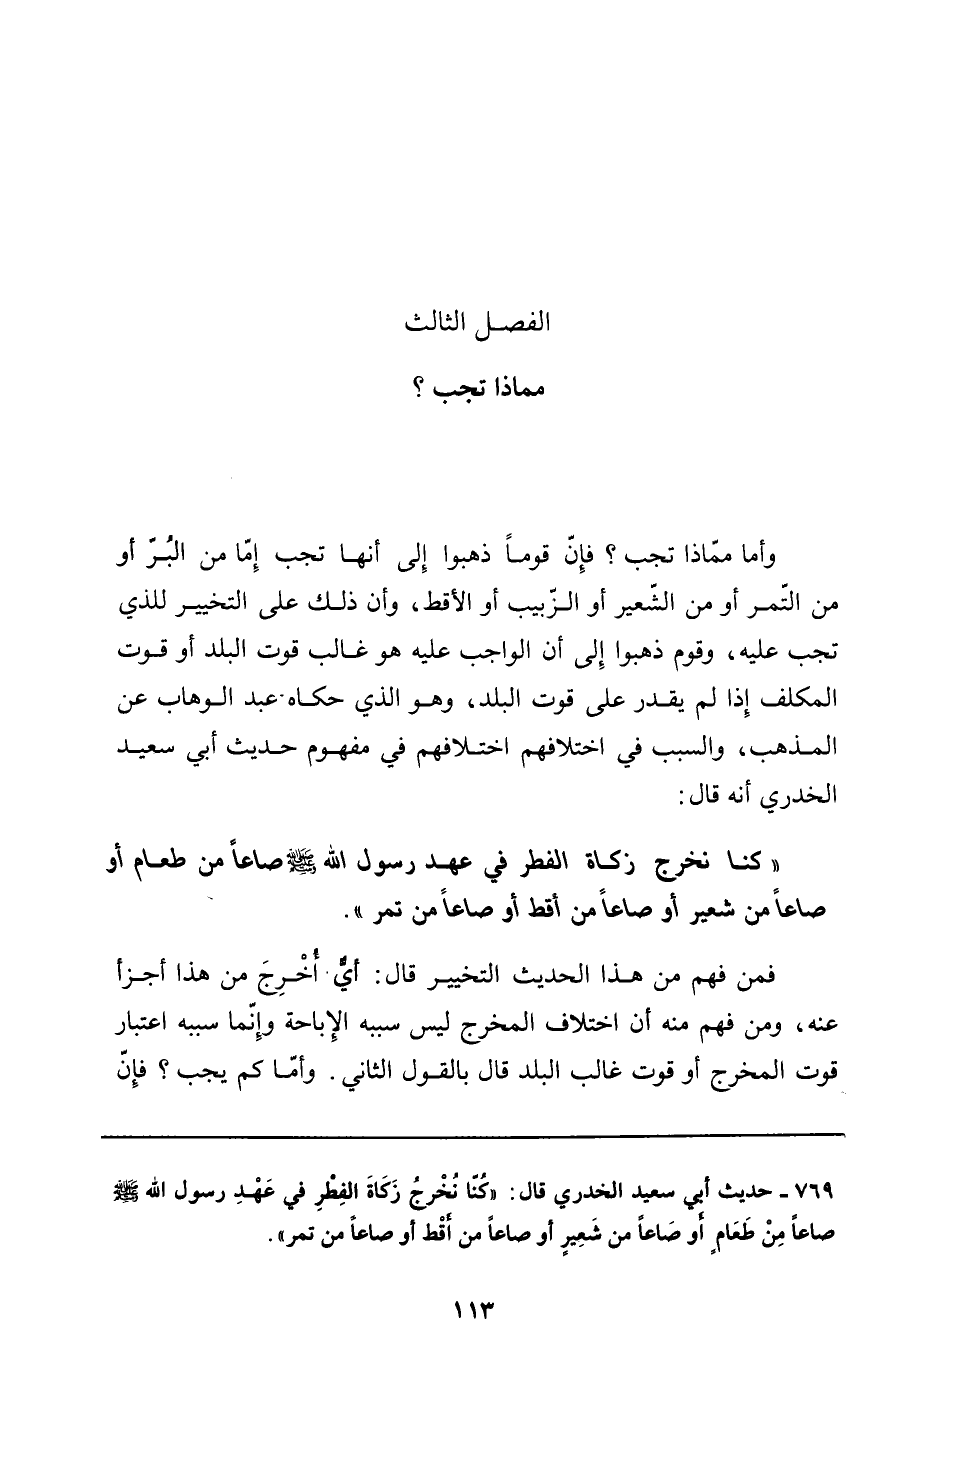 الفصل الثالث
مماذا تجب ؟
وأما ممّاذا تجب ؟ فإنّ قوماً ذهبوا إلى أنها تجب إمّا من البُرّ أو
من التّمر أو من الشّعير أو الزّبيب أو الأقط، وأن ذلك على التخيير للذي
تجب عليه، وقوم ذهبوا إلى أن الواجب عليه هو غالب قوت البلد أو قوت
المكلف إذا لم يقدر على قوت البلد، وهو الذي حكاه عبد الوهاب عن
المذهب، والسبب في اختلافهم اختلافهم في مفهوم حديث أبي سعيد
الخدري أنه قال:
« كنا نخرج زكاة الفطر في عهد رسول الله ﷺ صاعاً من طعام أو
صاعاً من شعير أو صاعاً من أقط أو صاعاً من تمر ».
فمن فهم من هذا الحديث التخيير قال: أيٌّ أُخْرِجَ من هذا أجزأ
عنه، ومن فهم منه أن اختلاف المخرج ليس سببه الإباحة وإنّما سببه اعتبار
قوت المخرج أو قوت غالب البلد قال بالقول الثاني. وأمّا كم يجب ؟ فإنّ
٧٦٩ - حديث أبي سعيد الخدري قال: «كُنّا نُخْرِجُ زَكَاةَ الفِطْرِ في عَهْدِ رسول الله ﷺ
صاعاً مِنْ طَعَامٍ أو صَاعاً من شَعِيرٍ أو صاعاً من أَقْط أو صاعاً من تمر».
١١٣